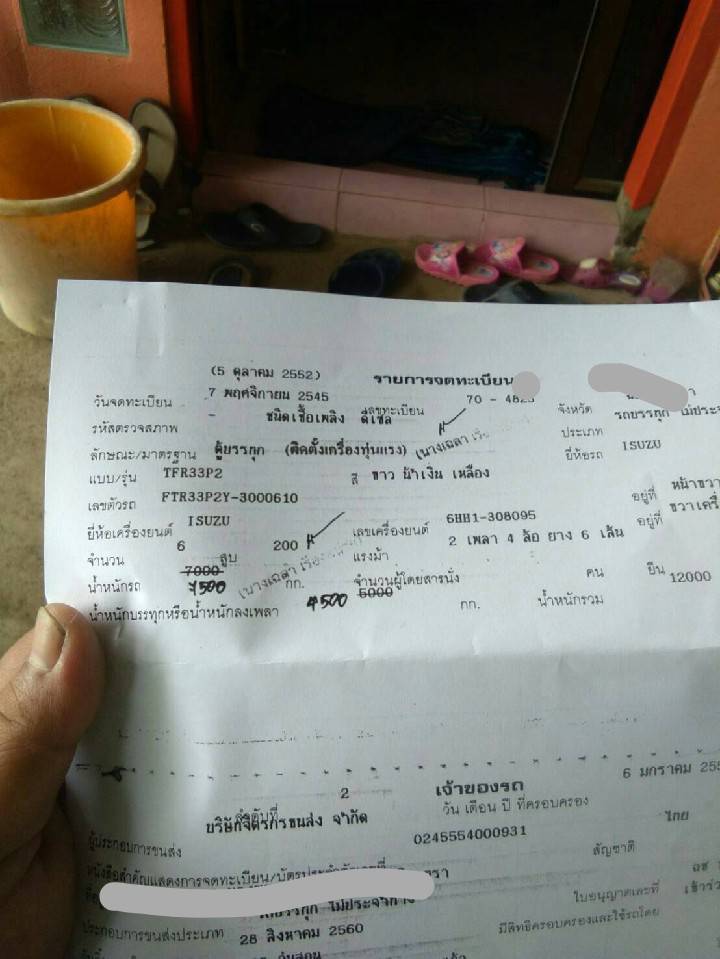 (5 ตุลาคม 2552)
รายการจดทะเบียน
วันจดทะเบียน 7 พฤศจิกายน 2545 เลขทะเบียน 70 - 4823 จังหวัด
รหัสตรวจสภาพ - ชนิดเชื้อเพลิง ดีเซล ประเภท รถบรรทุก ไม่ประ
ลักษณะ/มาตรฐาน ตู้บรรทุก (ติดตั้งเครื่องทุ่นแรง) ยี่ห้อรถ ISUZU
แบบ/รุ่น TFR33P2 สี ขาว น้ำเงิน เหลือง
เลขตัวรถ FTR33P2Y-3000610 อยู่ที่ หน้าขวา
ยี่ห้อเครื่องยนต์ ISUZU เลขเครื่องยนต์ 6HH1-308095 อยู่ที่ ขวาเครื่
จำนวน 6 สูบ 200 แรงม้า 2 เพลา 4 ล้อ ยาง 6 เส้น
น้ำหนักรถ 7000 7500 กก. จำนวนผู้โดยสารนั่ง คน ยืน
น้ำหนักบรรทุกหรือน้ำหนักลงเพลา 4500 5000 กก. น้ำหนักรวม 12000
เจ้าของรถ
ลำดับที่ 2 วัน เดือน ปี ที่ครอบครอง 6 มกราคม 255
ผู้ประกอบการขนส่ง บริษัทจิตรกรขนส่ง จำกัด
หนังสือสำคัญแสดงการจดทะเบียน/บัตรประจำตัวเลขที่ 0245554000931 สัญชาติ ไทย
ประกอบการขนส่งประเภท ใบอนุญาตเลขที่
28 สิงหาคม 2560 มีสิทธิครอบครองและใช้รถโดย